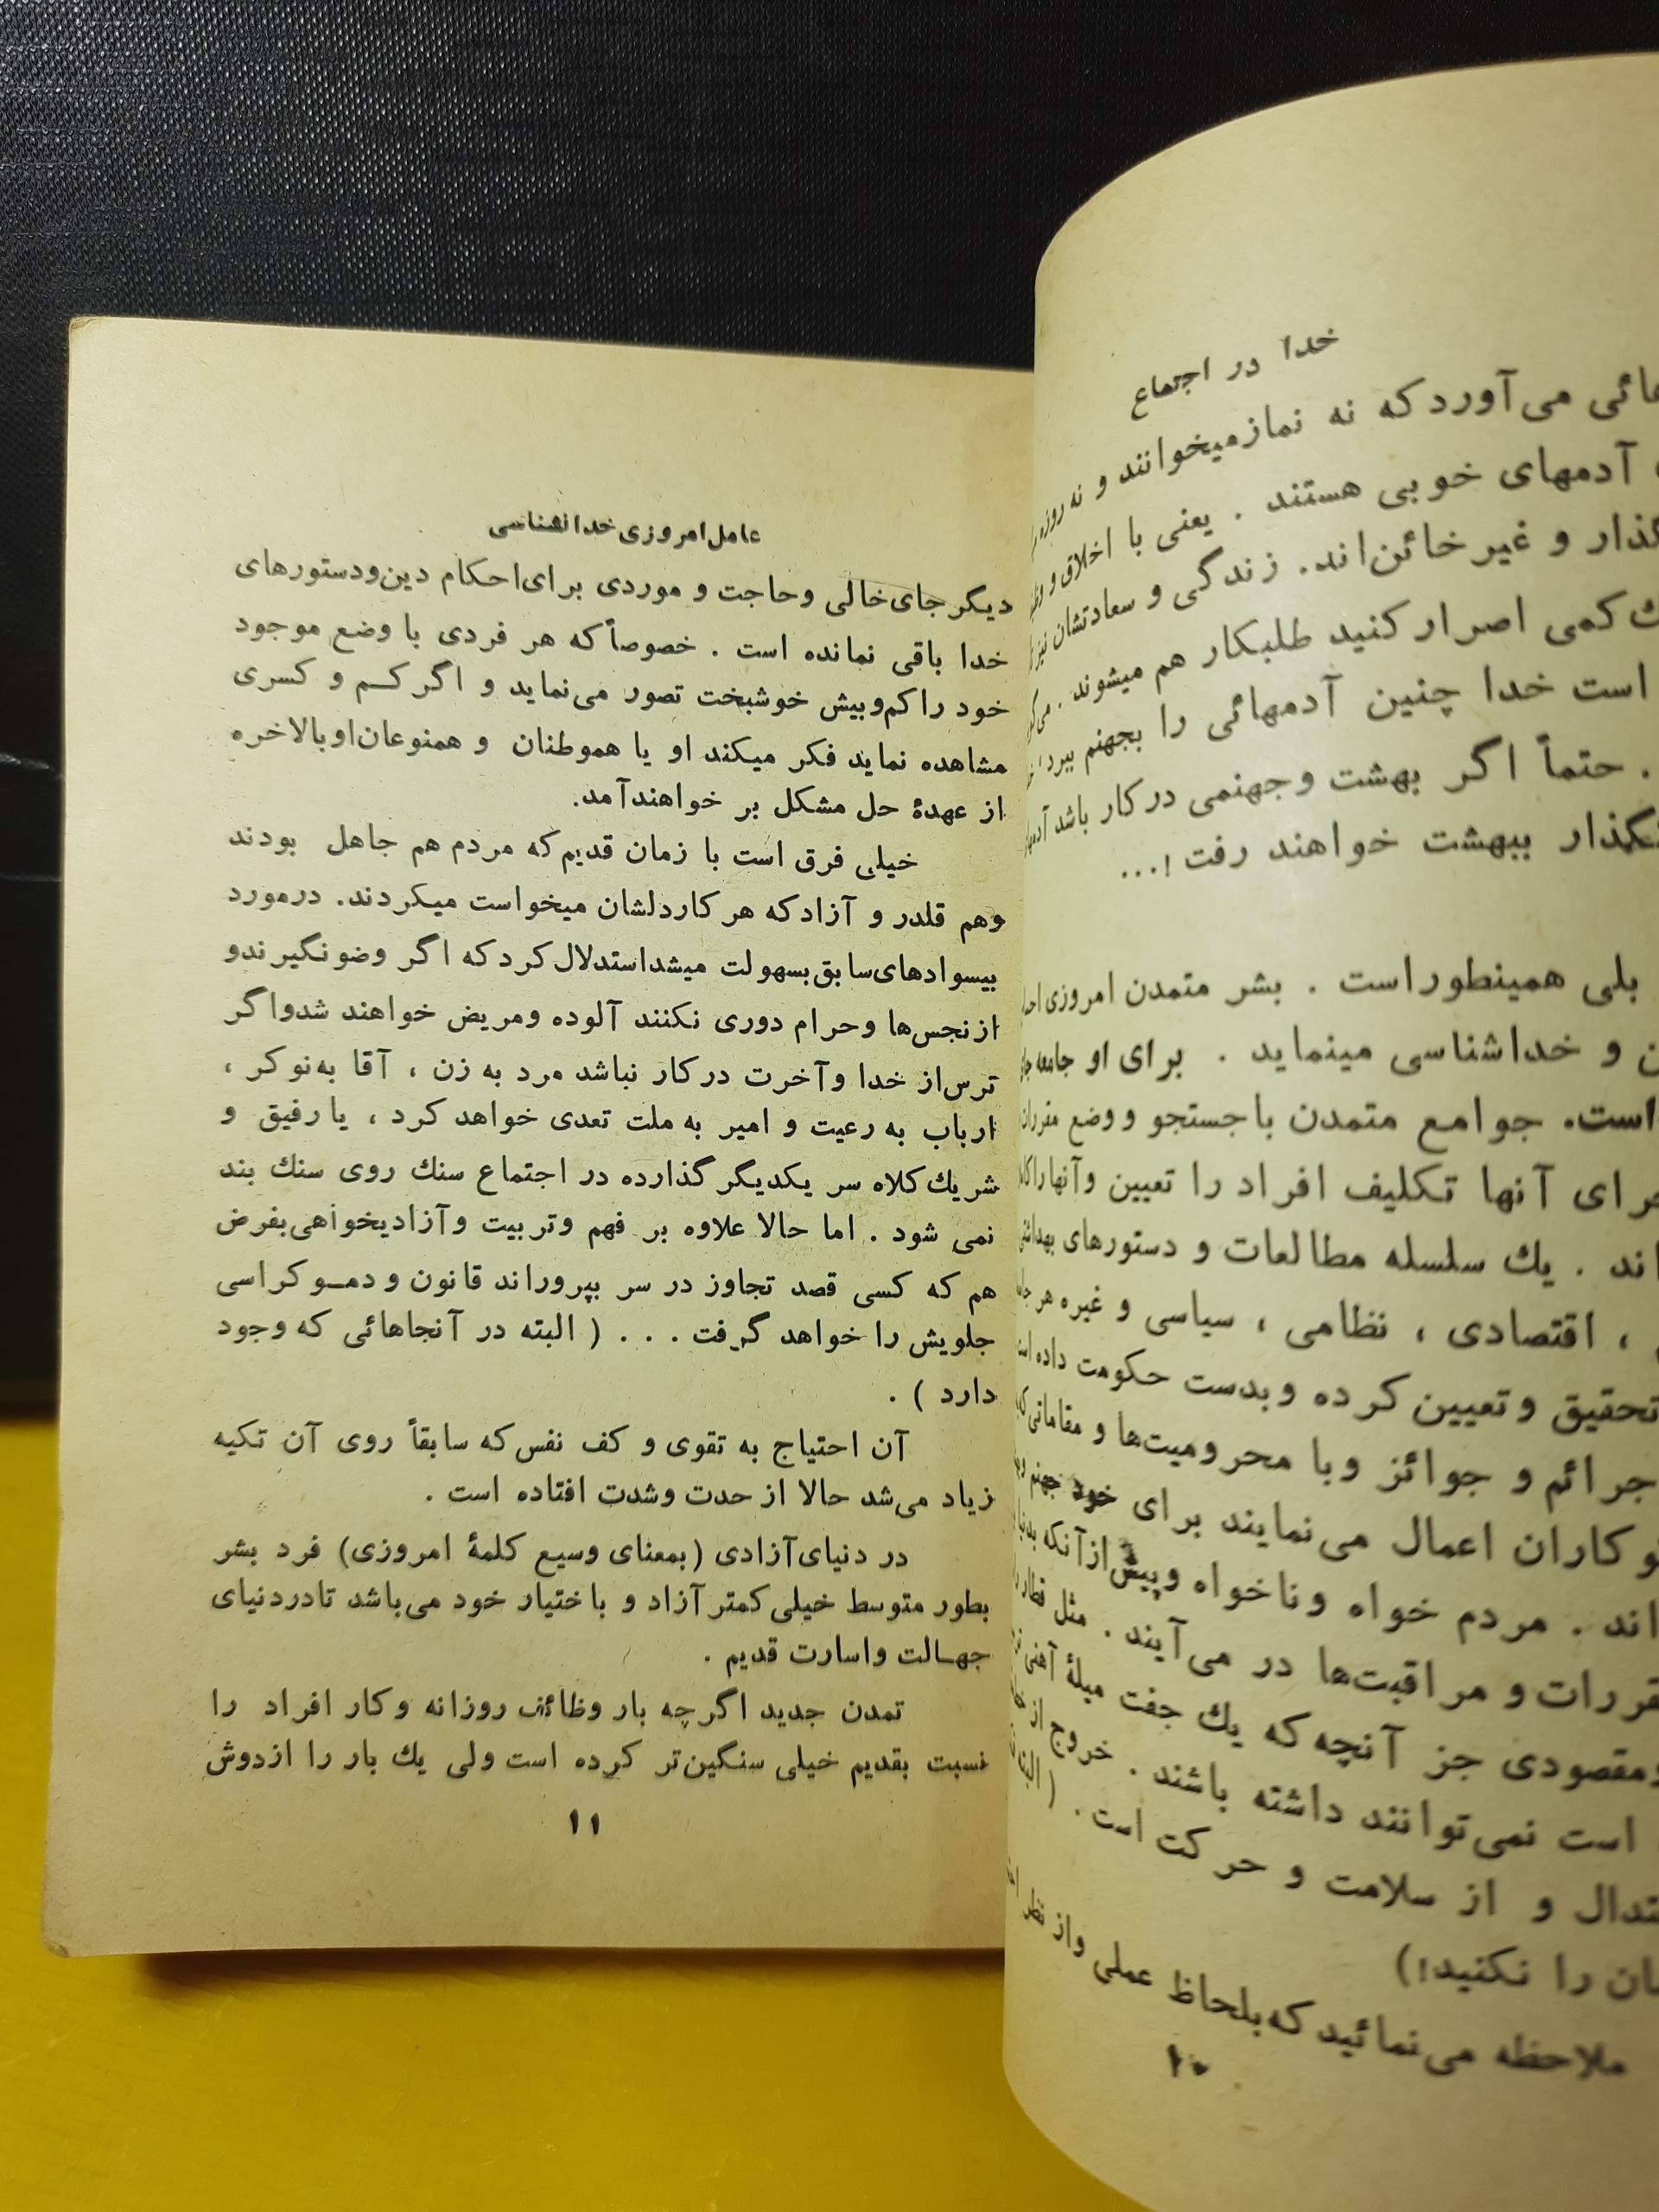 خدا در اجتماع
هائی می‌آورد که نه نماز میخوانند و نه روزه
آدمهای خوبی هستند . یعنی با اخلاق و
گذار و غیر خائن‌اند. زندگی و سعادتشان نیز
كمی اصرار کنید طلبکار هم میشوند .
است خدا چنین آدمهائی را بجهنم ببرد
. حتماً اگر بهشت و جهنمی در کار باشد
ببهشت خواهند رفت !...
بلی همینطور است . بشر متمدن امروزی
و خداشناسی مینماید . برای او جامعه
است. جوامع متمدن با جستجو و وضع
آنها تکلیف افراد را تعیین و آنها را
اند . یك سلسله مطالعات و دستورهای
، اقتصادی ، نظامی ، سیاسی و غیره هر
تحقیق و تعیین کرده و بدست حکومت داده
جرائم و جوائز و با محرومیت‌ها و مقاماتی
کاران اعمال می‌نمایند برای خود جهنم
اند . مردم خواه و ناخواه و پیش از آنکه
و مراقبت‌ها در می‌آیند . مثل قطار
مقصودی جز آنچه که یك جفت میلهٔ آهنی
است نمی‌توانند داشته باشند . خروج از
و از سلامت و حرکت است . (
را نکنید!)
ملاحظه می‌نمائید که بلحاظ عملی و از نظر
۱۰
عامل امروزی خدانشناسی
دیگر جای خالی و حاجت و موردی برای احکام دین و دستورهای
خدا باقی نمانده است . خصوصاً که هر فردی با وضع موجود
خود را کم و بیش خوشبخت تصور می‌نماید و اگر کــم و کسری
مشاهده نماید فکر میکند او یا هموطنان و همنوعان او بالاخره
از عهدهٔ حل مشکل بر خواهند آمد.
خیلی فرق است با زمان قدیم که مردم هم جاهل بودند
و هم قلدر و آزاد که هر کار دلشان میخواست میکردند. در مورد
بیسوادهای سابق بسهولت میشد استدلال کرد که اگر وضو نگیرند و
از نجس‌ها و حرام دوری نکنند آلوده و مریض خواهند شد و اگر
ترس از خدا و آخرت در کار نباشد مرد به زن ، آقا به نوکر ،
ارباب به رعیت و امیر به ملت تعدی خواهد کرد ، یا رفیق و
شریك کلاه سر یکدیگر گذارده در اجتماع سنك روی سنك بند
نمی شود . اما حالا علاوه بر فهم و تربیت و آزادیخواهی بفرض
هم که کسی قصد تجاوز در سر بپروراند قانون و دمــوکراسی
جلویش را خواهد گرفت . . . ( البته در آنجاهائی که وجود
دارد ) .
آن احتیاج به تقوی و کف نفس که سابقاً روی آن تکیه
زیاد می‌شد حالا از حدت و شدت افتاده است .
در دنیای آزادی (بمعنای وسیع کلمهٔ امروزی) فرد بشر
بطور متوسط خیلی کمتر آزاد و با ختیار خود می‌باشد تا در دنیای
جهــالت و اسارت قدیم .
تمدن جدید اگر چه بار وظائف روزانه و کار افراد را
نسبت بقدیم خیلی سنگین‌تر کرده است ولی یك بار را از دوش
۱۱